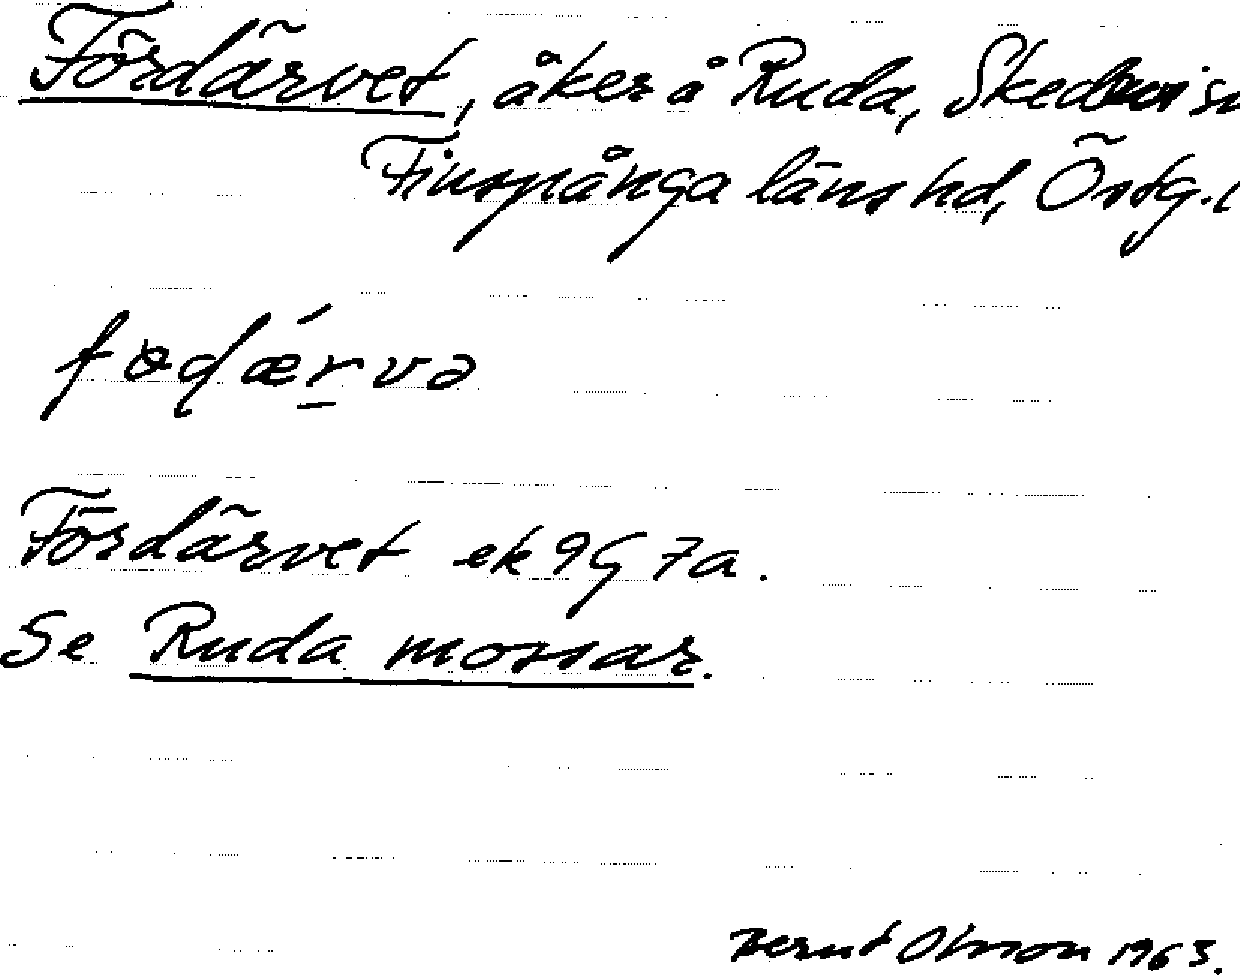 Fördärvet, åker å Ruda, Skedevi sn
Finspånga läns hd, Östg. l
fɵdǽr̲və
Fördärvet ek 9G 7a.
Se Ruda mossar.
Bernt Olsson 1963.